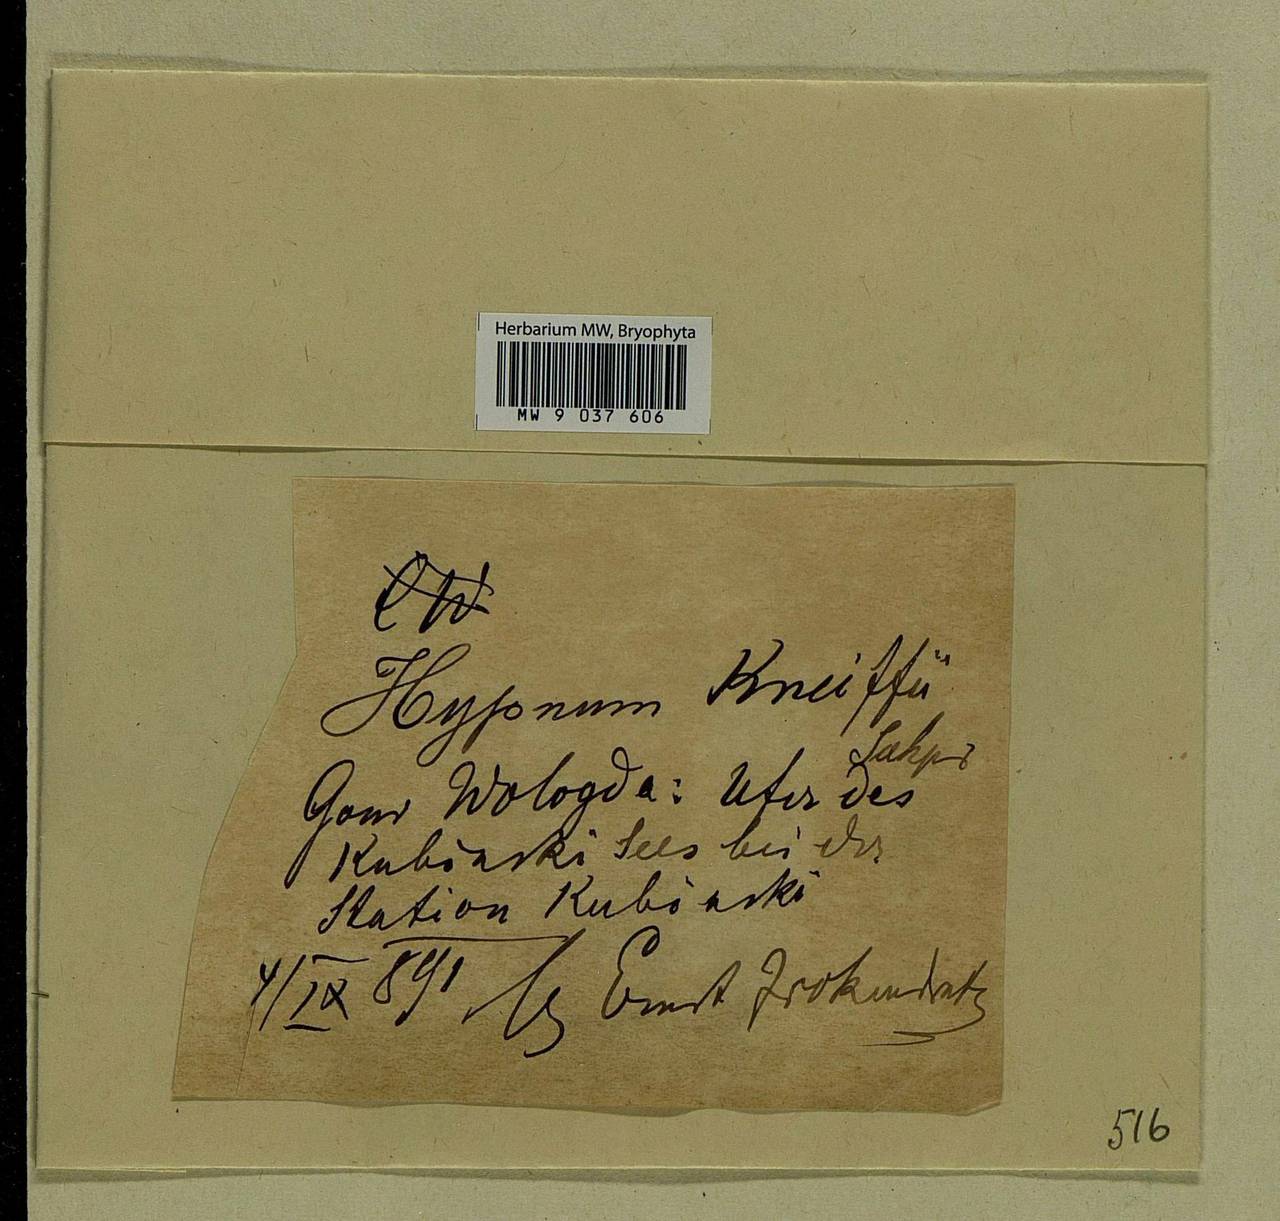 Herbarium MW, Bryophyta
MW 9 037 606
Hypnum Kneiffii
Gouv Wologda: Ufer des
Kubinski Sees bei der
Station Kubinski
4/IX 891 lg Ernst
516